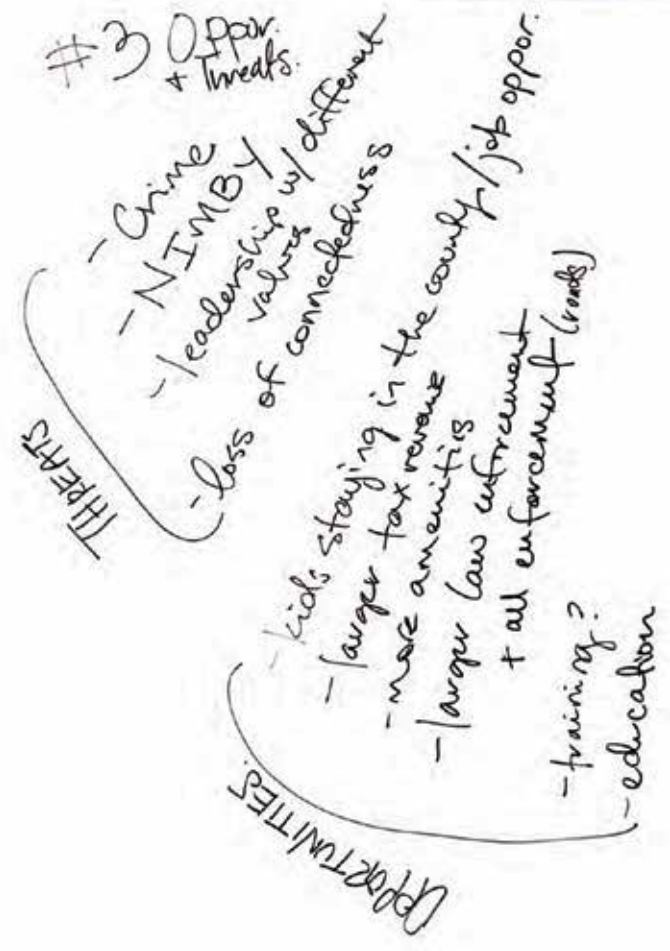 #3 Oppor.
+ Threats.
THREATS
- Crime
- NIMBY
- leaderships w/ different
values
- loss of connectedness
OPPORTUNITIES
- kids staying in the county/job oppor.
- larger tax revenue
- more amenities
- larger law enforcement
+ all enforcement (roads)
- training?
- education